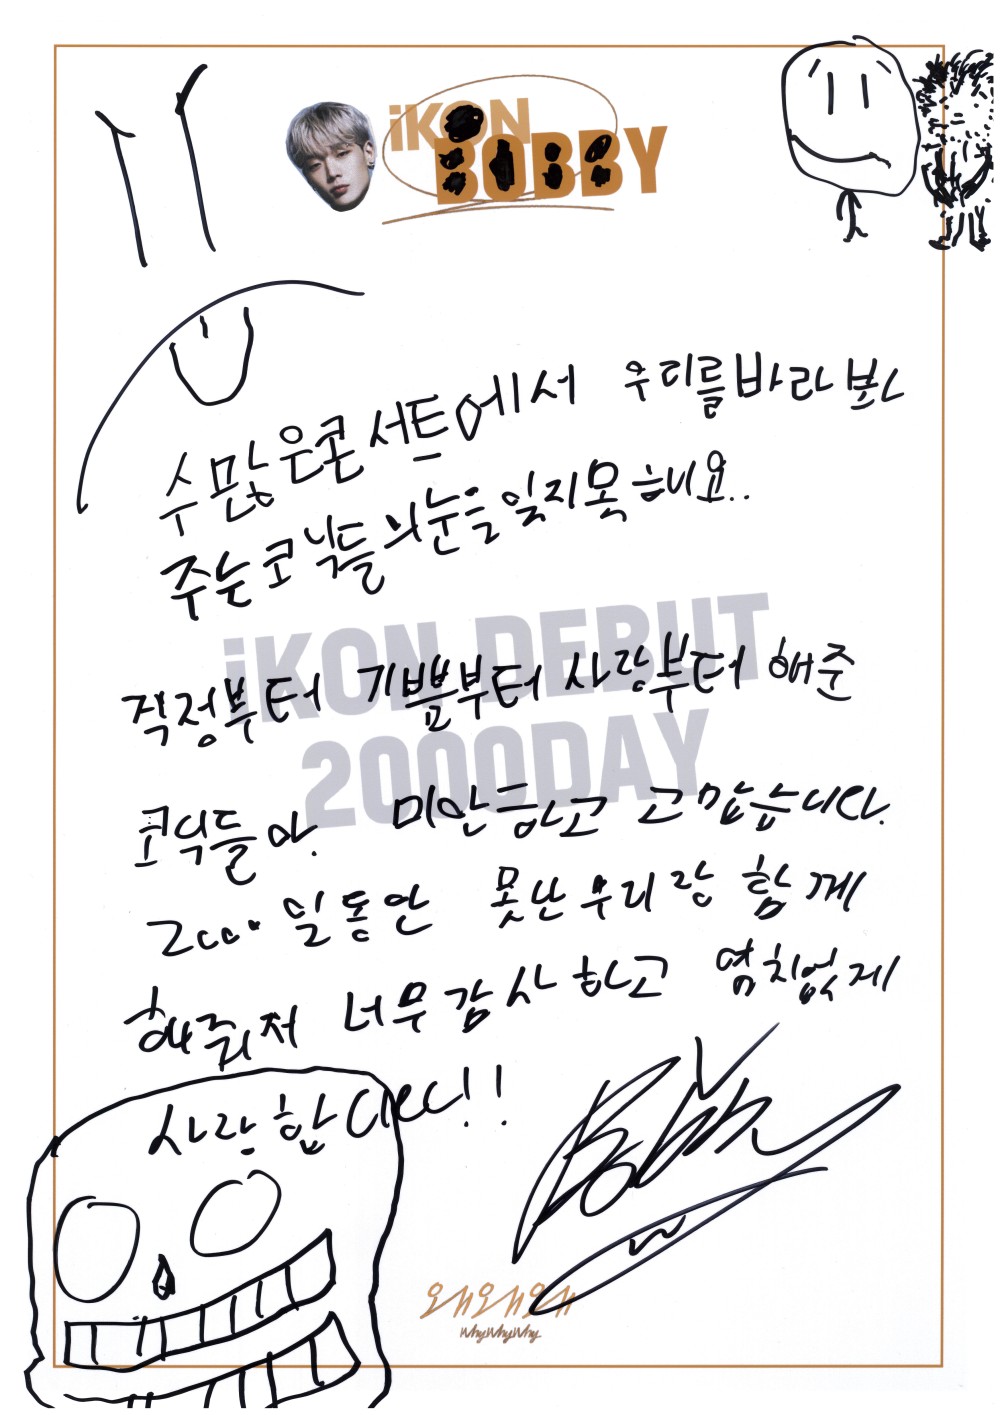 iKON
BOBBY
수많은콘서트에서 우리를바라봐
주는코닉들의눈을잊지못해요..
iKON DEBUT
걱정부터 기쁨부터사랑부터해준
2000DAY
코닉들아. 미안하고 고맙습니다.
2000일동안 못난우리랑 함께
해줘서 너무감사하고 염치없게
사랑합니다!!
Bobby
왜왜왜
WhyWhyWhy